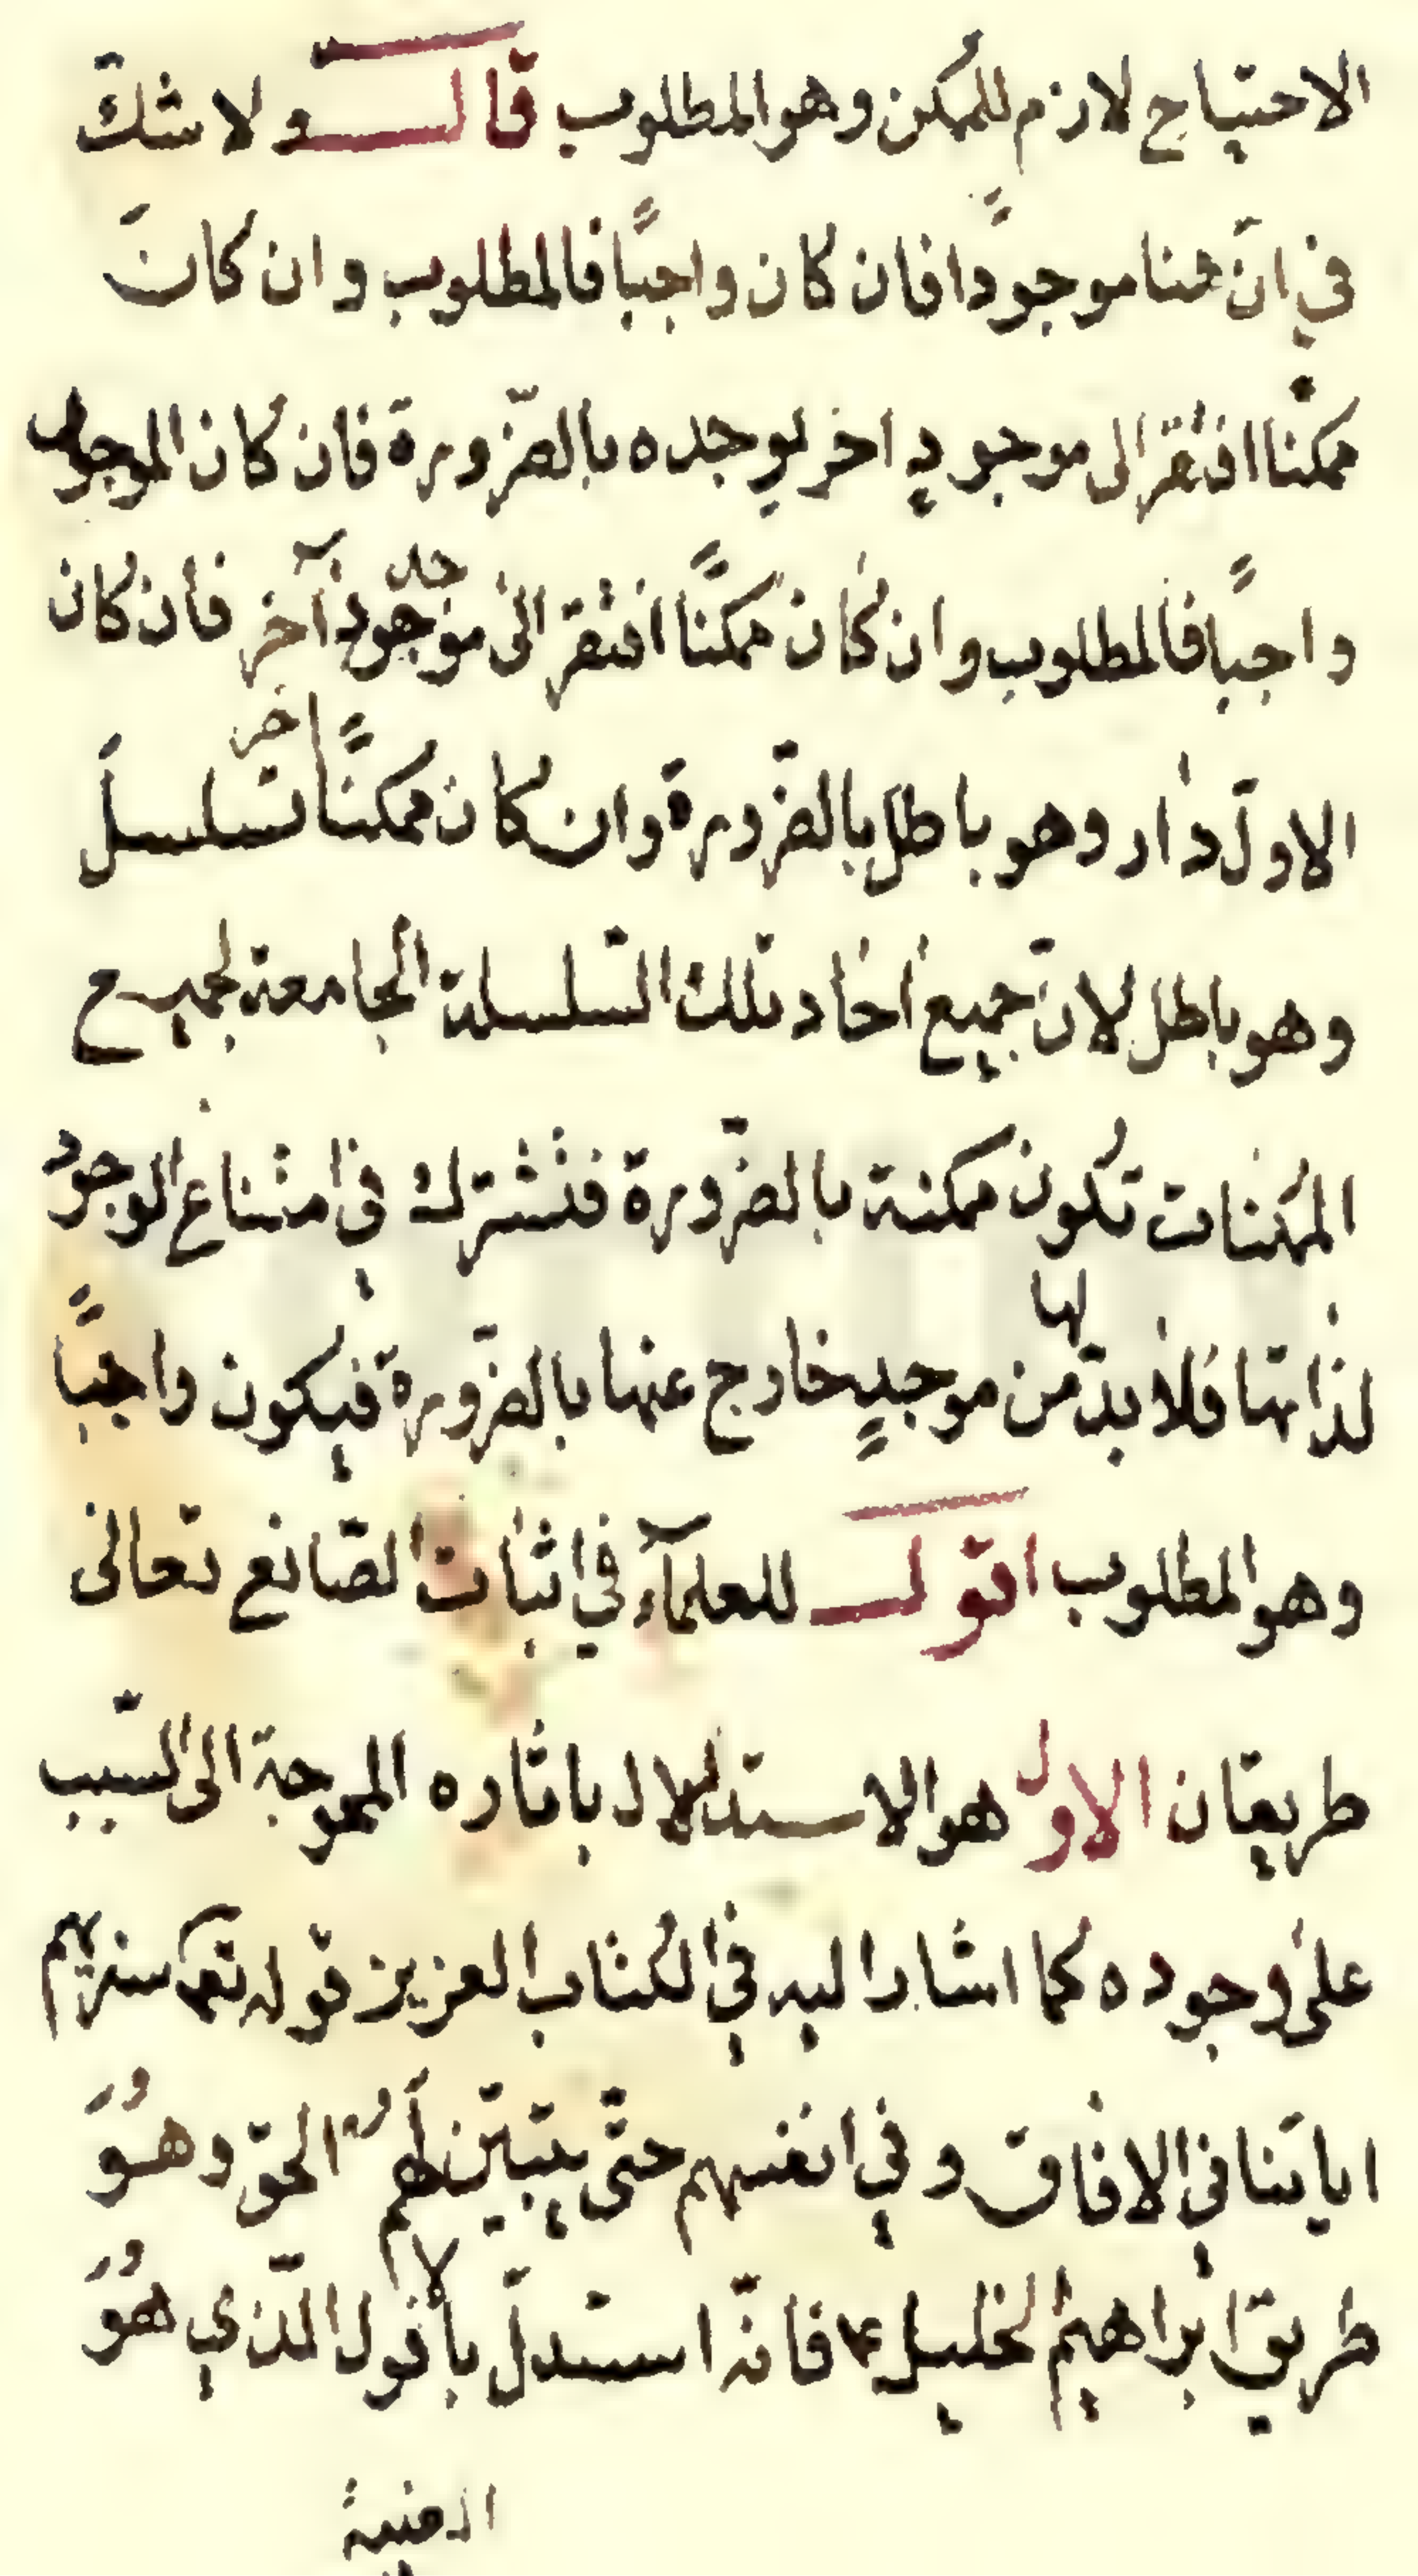 الاحتياج لازم للممكن وهو المطلوب قال ولا شكّ
في انّ هنا موجودًا فان كان واجبًا فالمطلوب وان كانَ
ممكنًا افتقر الى موجودٍ اخر يوجده بالضّرورة فان كان الموجد
واجبًا فالمطلوب وان كان ممكنًا افتقر الى موجدٍ آخر فان كان
الاوّل دار وهو باطل بالضّرورة وان كان ممكنًا اخر تسلسلَ
وهو باطل لانّ جميع احاد تلك السّلسلة الجامعة لجميع
الممكنات تكون ممكنة بالضّرورة فتشترك في امتناع الوجود
لذاتها فلا بدّ لها من موجدٍ خارج عنها بالضّرورة فيكون واجبًا
وهو المطلوب اقول للعلمآء في اثبات الصّانع تعالى
طريقان الاول هو الاستدلال باثاره المحوجة الى السّبب
على وجوده كما اشار اليه في الكتاب العزيز قوله تعم سنريهم
اياتنا في الافاق وفي انفسهم حتّى يتبيّن لهم انه الحقّ وهُوَ
طريق ابراهيم الخليل ع فانّه استدلّ بالأفول الّذي هُوَ
الغيبة